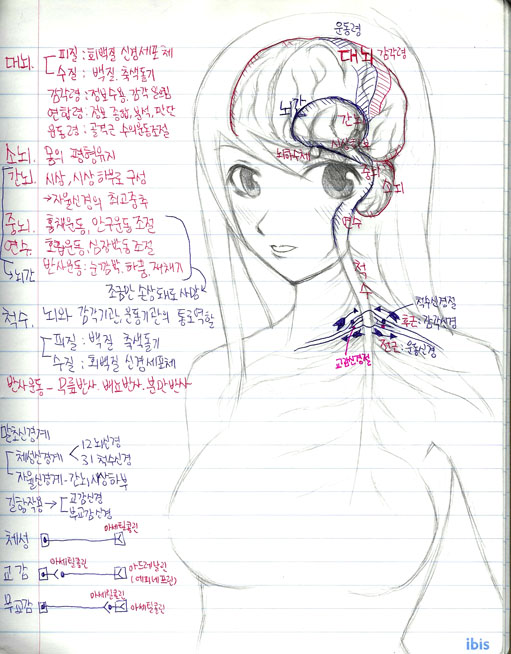 대뇌. 피질 : 회백질 신경세포체
수질 : 백질. 축색돌기
감각령 : 정보수용, 감각 올림
연합령 : 정보 종합, 분석, 판단
운동령 : 골격근 수의운동조절
소뇌. 몸의 평형유지
간뇌. 시상, 시상하부로 구성
→자율신경의 최고중추
중뇌. 홍채운동, 안구운동 조절
연수. 호흡운동, 심장박동조절
반사운동 : 눈깜박, 하품, 재채기
→뇌간
조금만 손상돼도 사망
척수. 뇌와 감각기관, 운동기관의 통로역할
피질 : 백질 축색돌기
수질 : 회백질 신경세포체
반사운동 - 무릎반사. 배뇨반사. 분만반사
말초신경계
체성신경계 12뇌신경
31 척수신경
자율신경계 - 간뇌시상하부
길항작용 → 교감신경
부교감신경
체성 아세틸콜린
교감 아세틸콜린 아드레날린
(에피네프린)
부교감 아세틸콜린 아세틸콜린
운동령
대뇌 감각령
뇌간
간뇌
시상하부
뇌하수체
중뇌
소뇌
연수
척
수
척수신경절
후근 : 감각신경
전근 : 운동신경
교감신경절
ibis